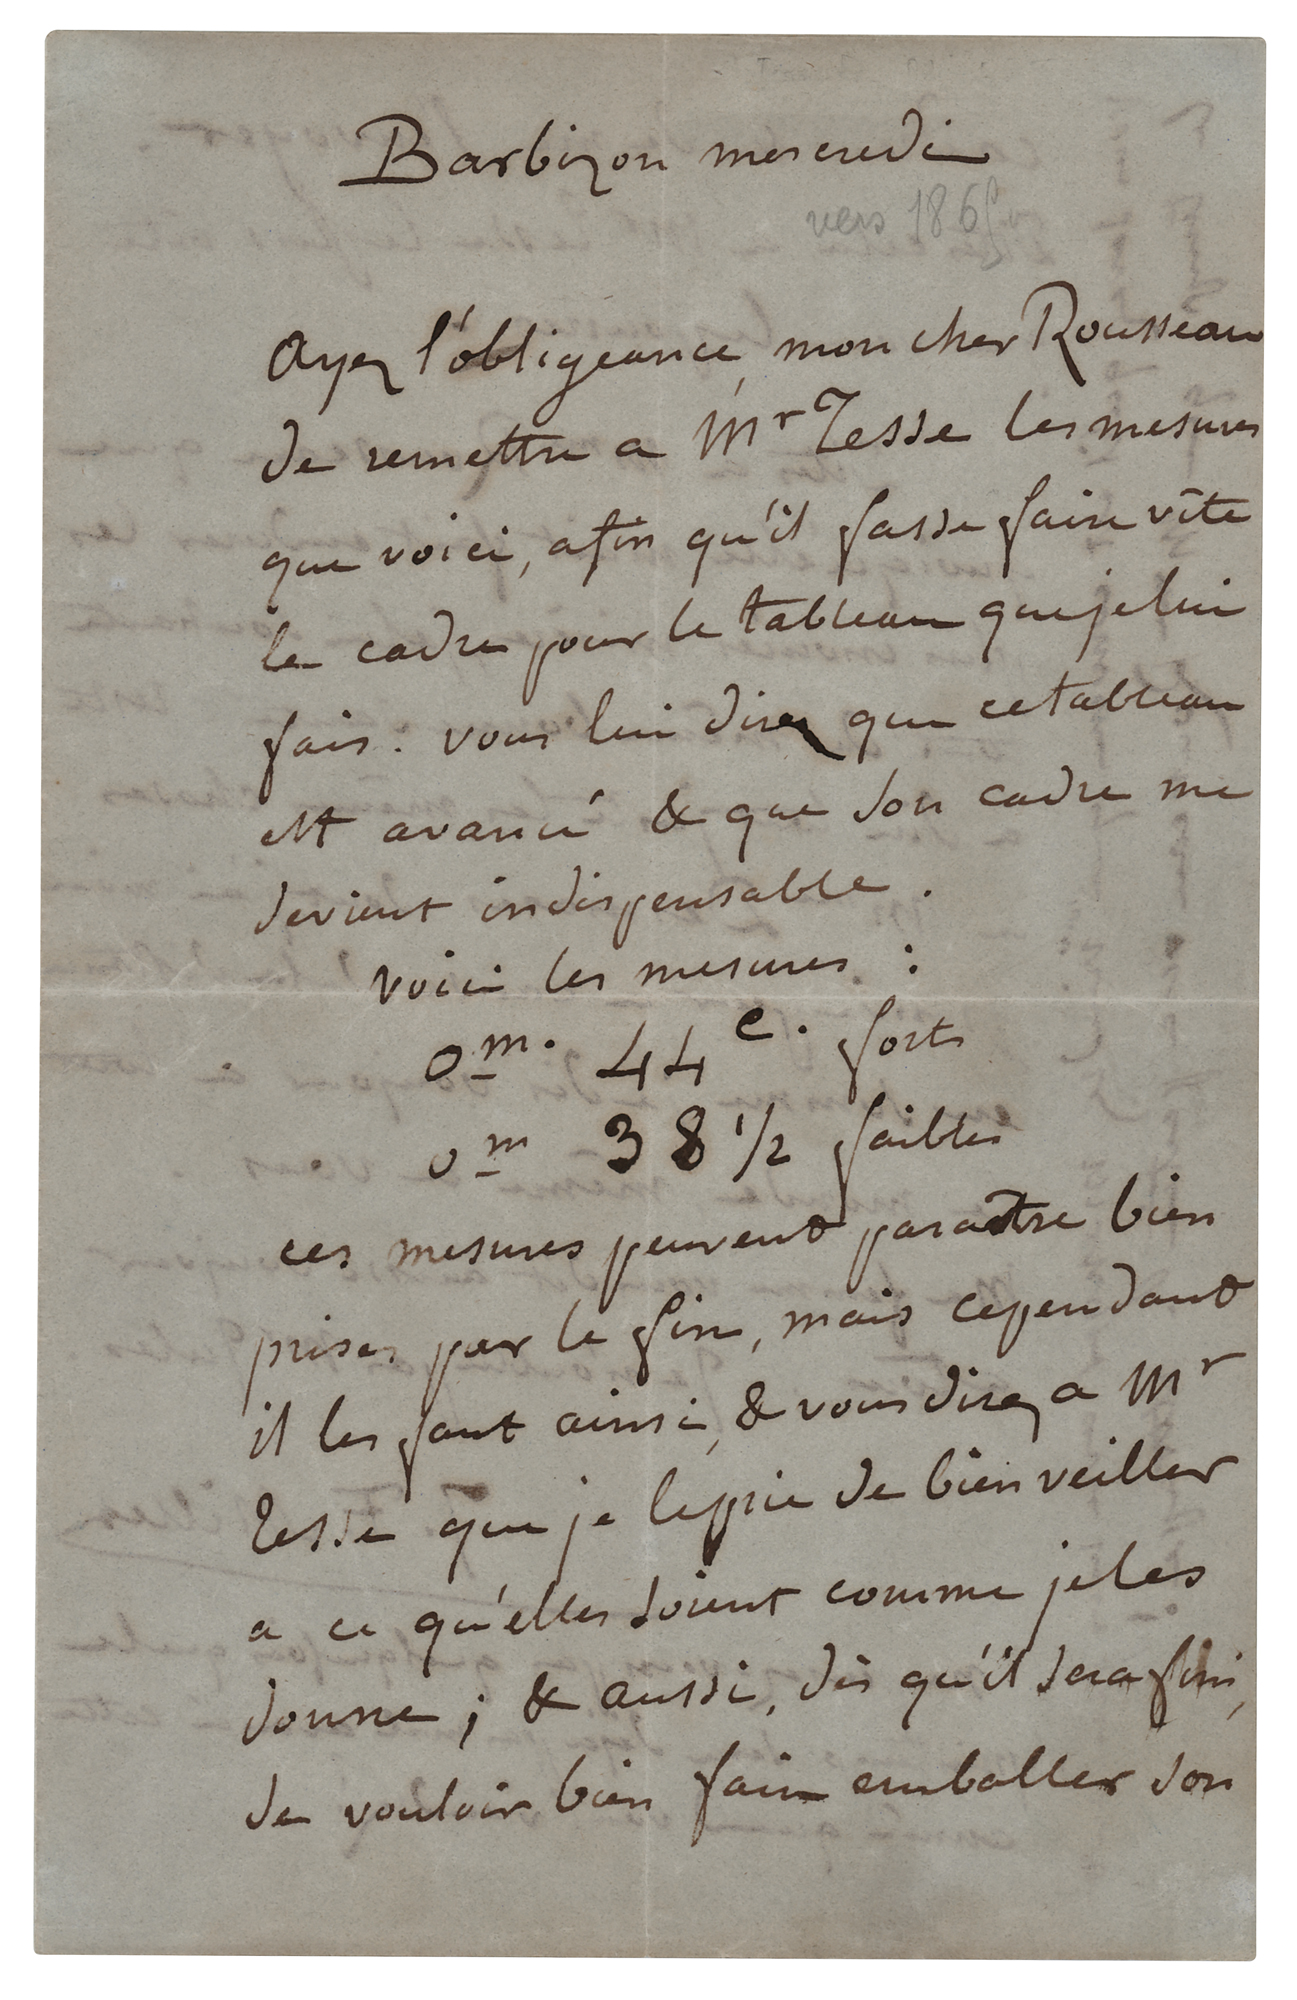 Barbizon mercredi
vers 186
Ayez l'obligeance, mon cher Rousseau
de remettre a Mr Tesse les mesures
que voici, afin qu'il fasse faire vîte
le cadre pour le tableau que je lui
fais. vous lui direz que ce tableau
est avancé & que son cadre me
devient indispensable.
voici les mesures :
0m. 44 c. forts
0m 38 1/2 faibles
ces mesures peuvent paraître bien
prises par le fin, mais cependant
il les faut ainsi, & vous direz a Mr
Tesse que je le prie de bien veiller
a ce qu'elles soient comme je les
donne ; & aussi, dès qu'il sera fini,
de vouloir bien faire emballer son